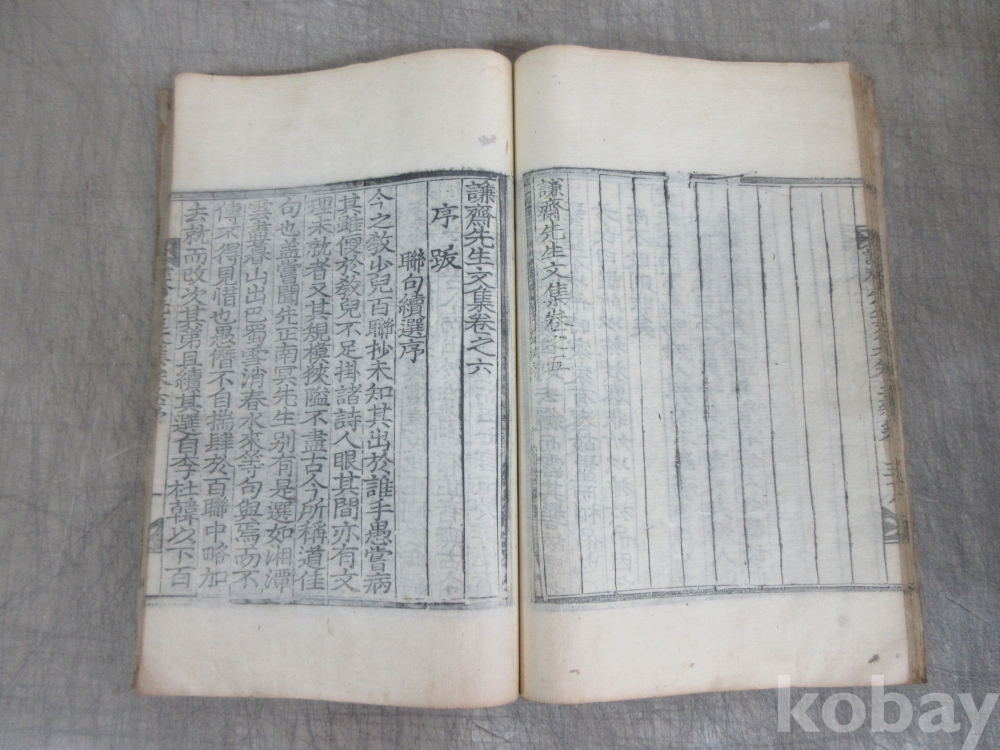 謙齋先生文集卷之五
謙齋先生文集卷之六
序跋
聯句續選序
今之敎少兒百聯抄未知其出於誰手愚嘗病
其雖便於敎兒不足掛諸詩人眼其間亦有文
理未就者又其規模狹隘不盡古今所稱道佳
句也盖嘗聞先正南冥先生別有是選如湘潭
雲盡暮山出巴蜀雪消春水來等句與焉而不
傳不得見惜也愚僭不自揣肆於百聯中略加
去就而改次其第且續其選自李杜韓以下百
kobay